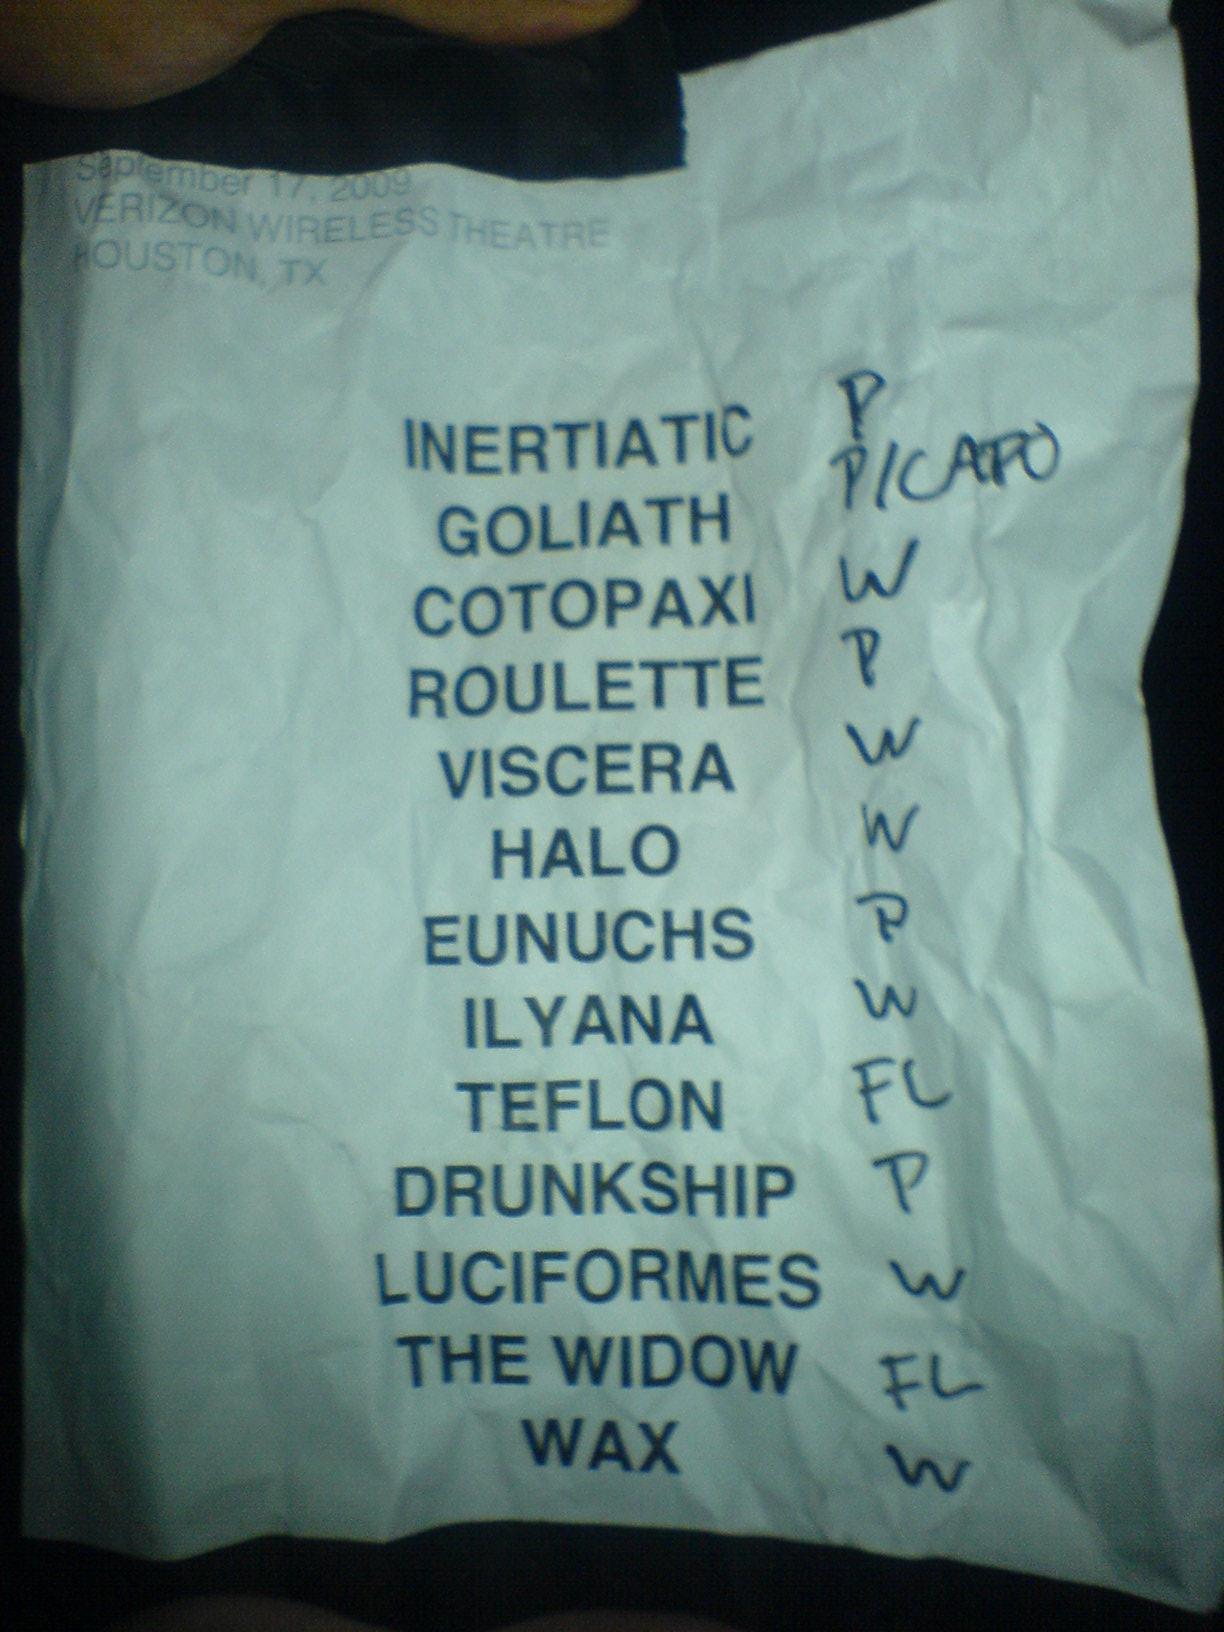 September 17, 2009
VERIZON WIRELESS THEATRE
HOUSTON, TX
INERTIATIC P
GOLIATH P/CAPO
COTOPAXI W
ROULETTE P
VISCERA W
HALO W
EUNUCHS P
ILYANA W
TEFLON FL
DRUNKSHIP P
LUCIFORMES W
THE WIDOW FL
WAX W